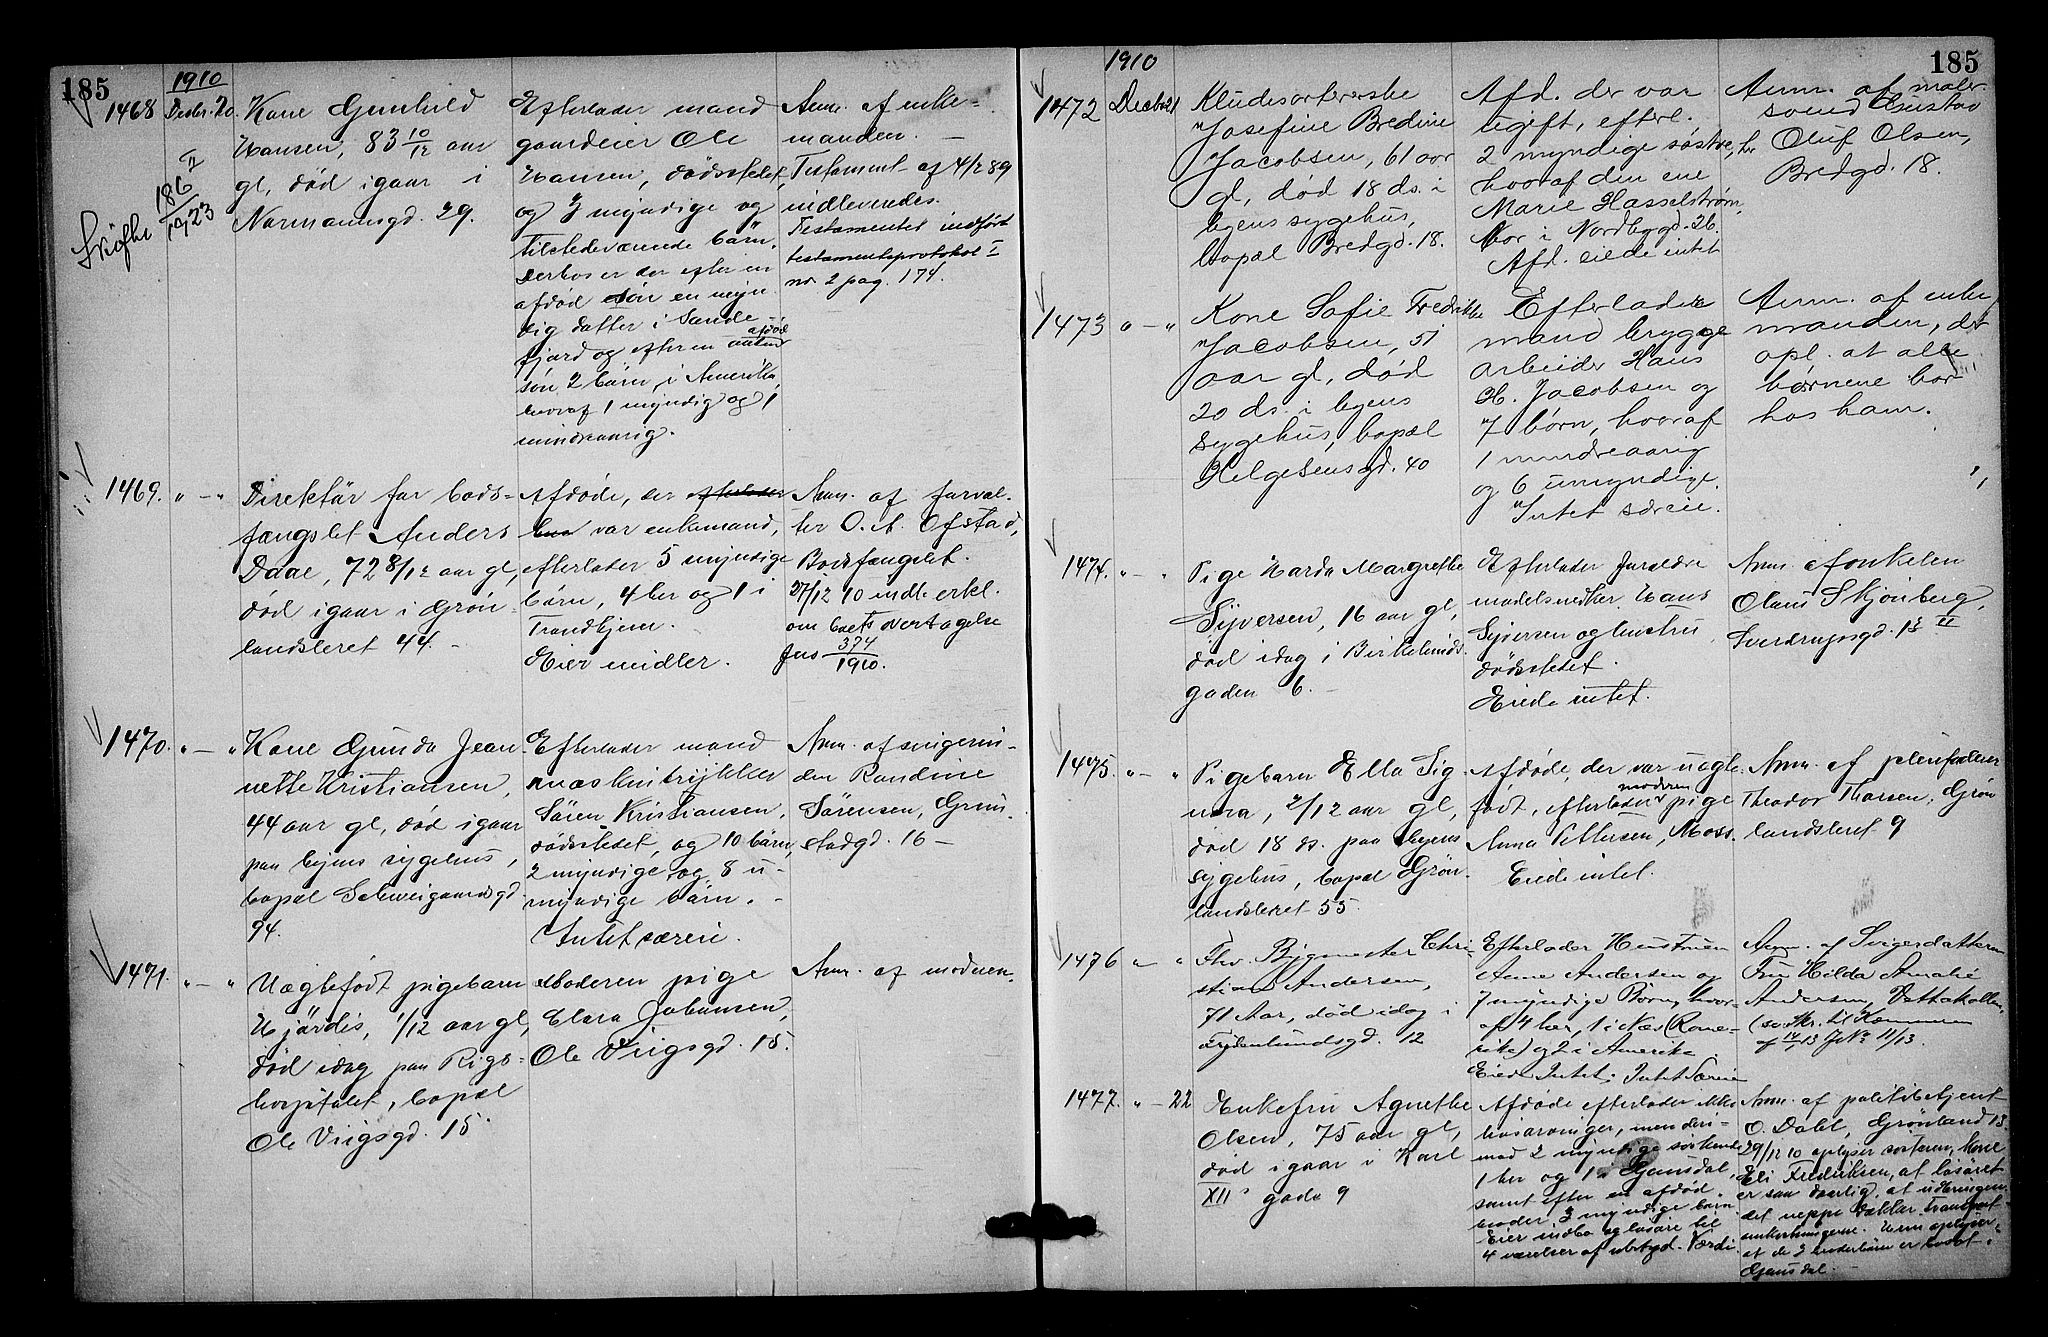 185
1910
1468
Decbr. 20.
Kone Gunhild
Hansen, 83 10/12 aar
gl, død igaar i
Normannsgd. 29.
Skifte 186 II/1923
Efterlader mand
gaardeier Ole
Hansen, dødsstedet
og 7 myndige og
tilstedeværende børn.
Derhos er der efter en
afdød søn en myn
dig datter i Sande-
fjord og efter en afdød
søn 2 børn i Amerika,
hvoraf 1 myndig og 1
mindreaarig.
Anm. af enke-
manden. —
Testament af 4/2 89
indleveredes.
Testamentet indført
testamentsprotokol I
no 2 pag. 174.
1469. " — "
Direktør for bods-
fængslet Anders
Daae, 72 8/12 aar gl,
død igaar i Grøn-
landsleret 44. -
Afdøde, der efterlader
var enkemand,
efterlader 5 myndige
børn, 4 her og 1 i
Trondhjem.
Eier midler.
Anm. af forval-
ter O. A. Ofstad,
Bodsfængslet.
27/12 10 indk. erkl.
om boets overtagelse
Jns 374/1910.
1470. " — "
Kone Gunda Jean-
nette Kristiansen,
44 aar gl, død igaar
paa byens sygehus,
bopæl Schweigaardsgd
94.
Efterlader mand
maskintrykker
Søren Kristiansen,
dødsstedet, og 10 børn,
2 myndige og 8 u-
myndige børn. -
Intet særeie.
Anm. af svigerin-
den Randine
Sørensen, Grim-
stadgd. 16 —
1471. " — "
Uægtefødt pigebarn
Hjørdis, 1/12 aar gl,
død idag paa Rigs-
hospitalet, bopæl
Ole Vigsgd. 15.
Moderen pige
Clara Johansen,
Ole Vigsgd. 15.
Anm. af moderen.
185
1910
1472
Decbr 21
Kludesorterske
Josefine Bredine
Jacobsen, 61 aar
gl, død 18 ds. i
byens sygehus,
bopæl Bredgd. 18.
Afd. der var
ugift, efterl.
2 myndige søstre,
hvoraf den ene
Marie Hasselstrøm,
bor i Nordbygd. 26.
Afd. eiede intet
Anm. af maler
svend Gustav
Oluf Olsen,
Bredgd. 18.
1473 " — "
Kone Sofie Fredrikke
Jacobsen, 51
aar gl, død
20 ds. i byens
sygehus, bopæl
Helgesensgd. 40
Efterlader
mand brygge
arbeider Hans
H. Jacobsen og
7 børn, hvoraf
1 mindreaarig
og 6 umyndige.
Intet særeie.
Anm. af enke
manden, der
opl. at alle
børnene bor
hos ham.
1474. " — "
Pige Harda Margrethe
Syversen, 16 aar gl,
død idag i Birkelunds
gaden 6. -
Efterlader forældre
modelsnedker Hans
Syversen og hustru
dødsstedet.
Eiede intet.
Anm. af onkelen
Olaus Skjønberg,
Sverdrupsgd. 13 II
1475. " — "
Pigebarn Ella Sig-
nora, 2/12 aar gl,
død 18 ds. paa byens
sygehus, bopæl Grøn-
landsleret 55.
Afdøde, der var uægte-
født, efterlader moderen pige
Anna Pettersen, Moss.
Eiede intet.
Anm. af pleiefaderen
Theodor Thorsen, Grøn
landsleret 9
1476 " — "
Fhv. Bygmester Chri-
stian Andersen,
71 Aar, død idag i
Frydenlundsgd. 12
Efterlader Hustruen
Anne Andersen og
7 myndige Børn, hvor-
af 4 her, 1 i Næs (Rome-
rike) og 2 i Amerika
Eiede Intet; Intet Særeie
Anm. af Svigerdatteren
Fru Hilda Amalie
Andersen,
(se Skr. til Kæmneren
af 14/1 13 J.No 11/13.
1477. " — 22
Enkefru Agnethe
Olsen, 75 aar gl,
død igaar i Karl
XII's gade 9
Afdøde efterlader ikke
livsarvinger, men deri-
mod 2 myndige søskende
1 her og 1 i Gjeusdal,
samt efter en afdød
broder 3 myndige børn.
Eier indbo og løsøre til
4 værelser af ubetyd. Værdi.
Anm. af politibetjent
O. Dahl, Grønland 13.
29/12 10 oplyser søsteren, Kone
Eli Fredriksen, at løsøret
er saa daarlig, at udbringen-
det neppe dækker Transport
omkostningerne. Hun oplyser
at de 3 broderbørn er bosat i
Gjeusdal. —